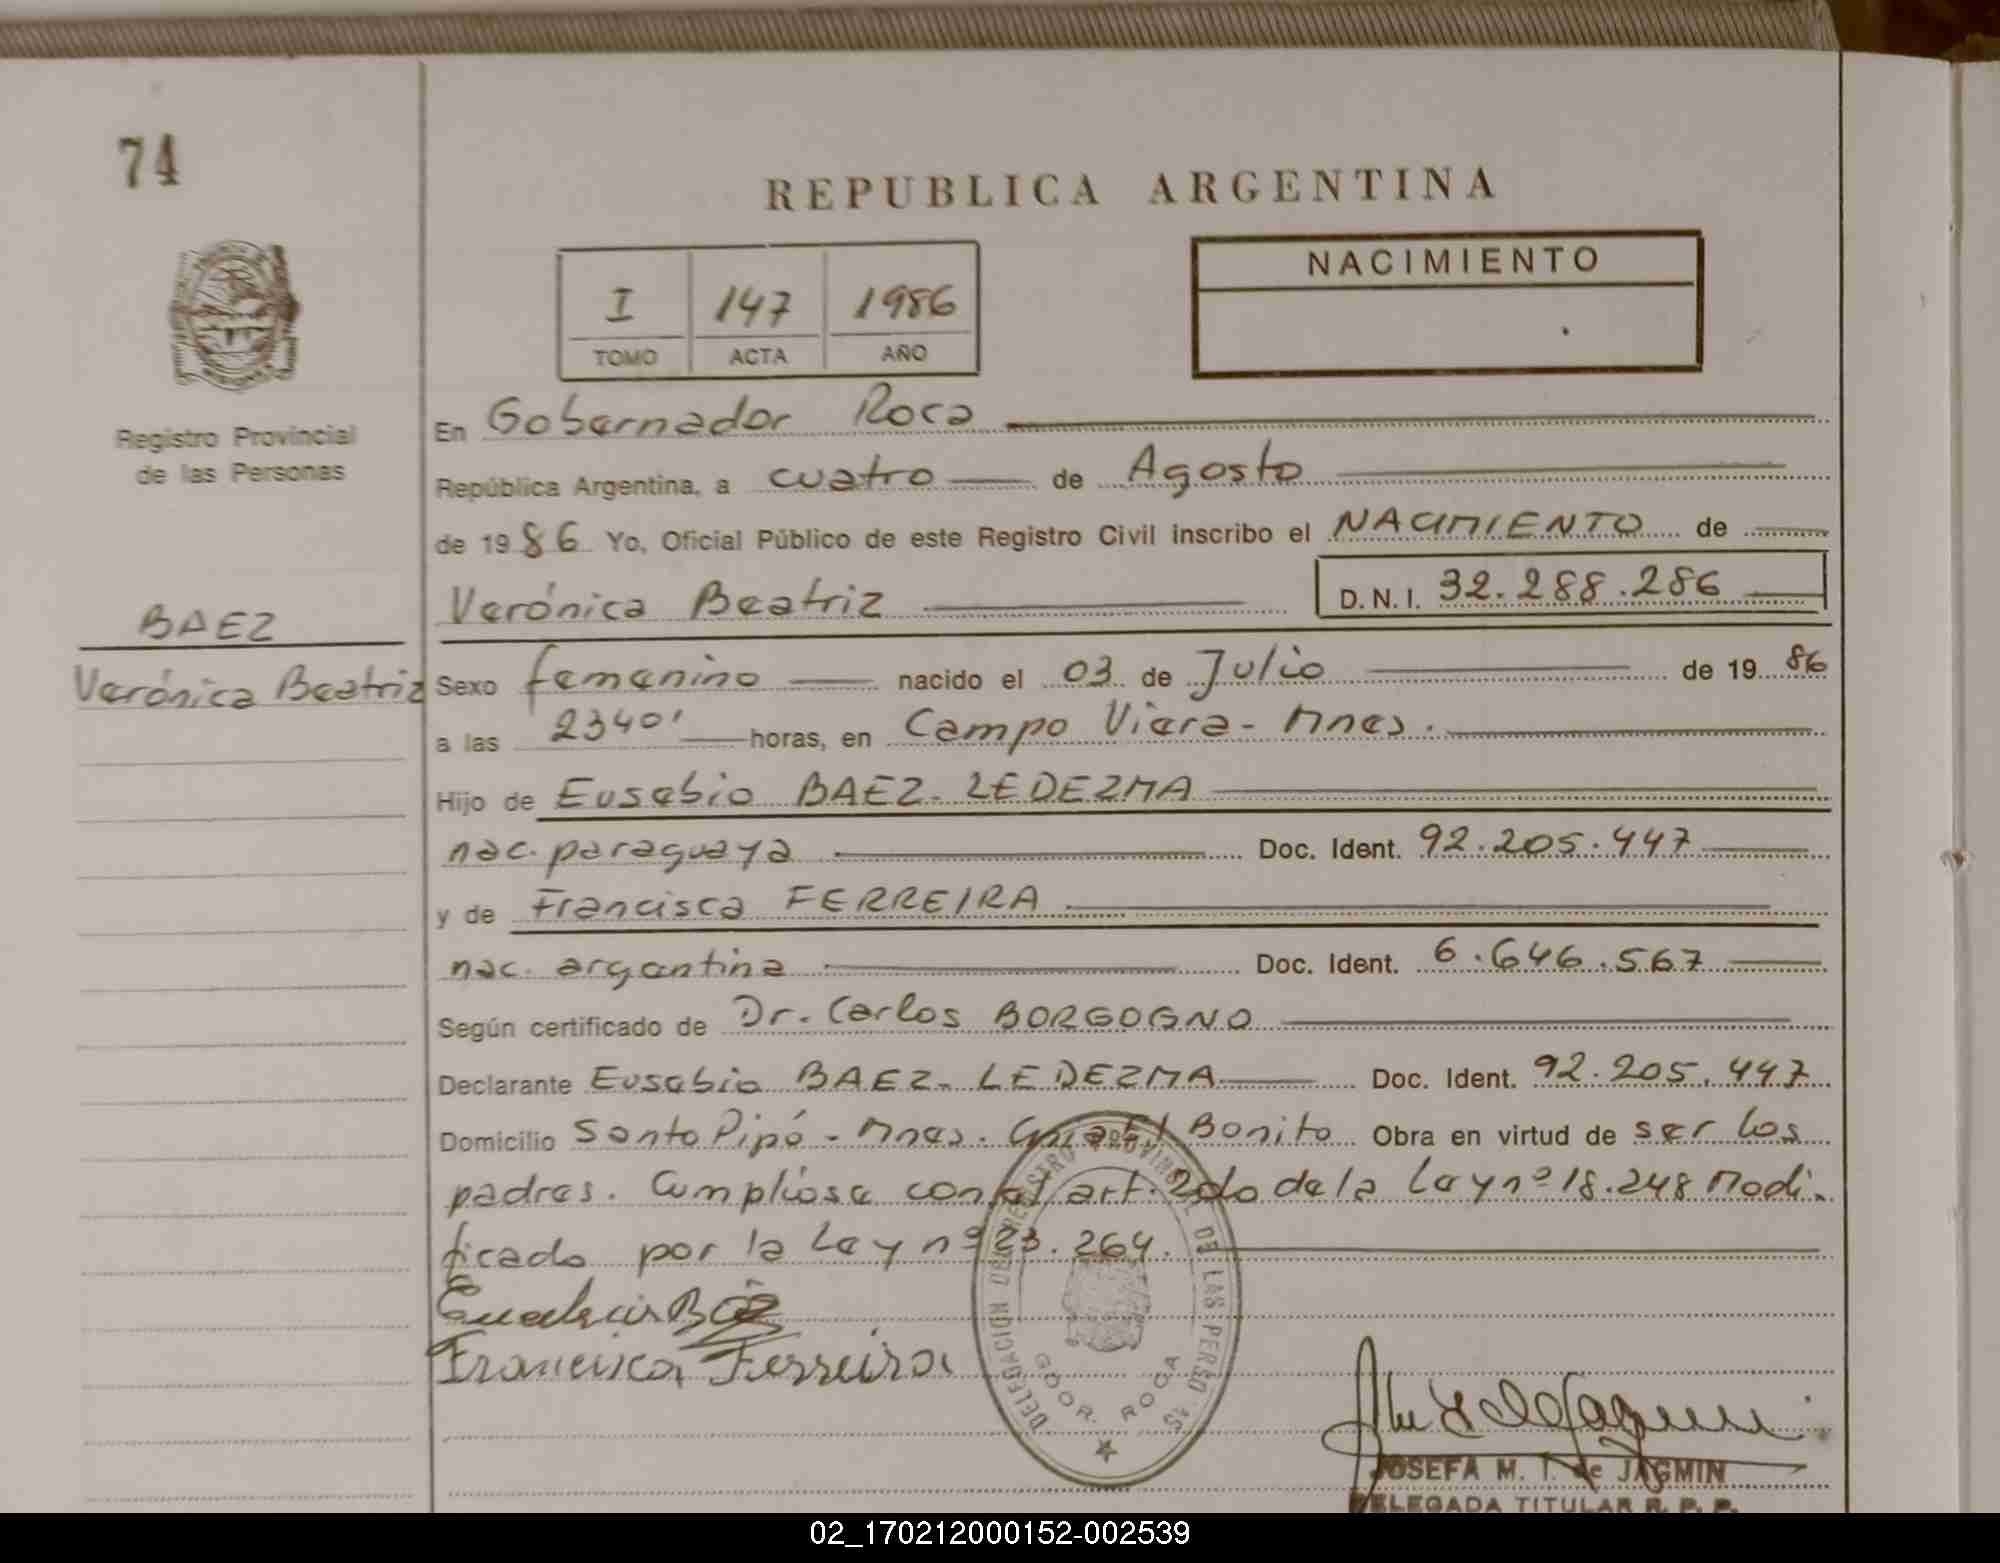 74
REPUBLICA ARGENTINA
NACIMIENTO
I 147 1986
TOMO ACTA AÑO
Registro Provincial
de las Personas
En Gobernador Roca
República Argentina, a cuatro de Agosto
de 1986 Yo, Oficial Público de este Registro Civil inscribo el NACIMIENTO de
Verónica Beatriz D.N.I. 32.288.286
BAEZ
Verónica Beatriz
Sexo femenino nacido el 03 de Julio de 1986
a las 2340' horas, en Campo Viera - Mnes.
Hijo de Eusebio BAEZ - LEDEZMA
nac. paraguaya Doc. Ident. 92.205.447
y de Francisca FERREIRA
nac. argentina Doc. Ident. 6.646.567
Según certificado de Dr. Carlos BORGOGNO
Declarante Eusebio BAEZ - LEDEZMA Doc. Ident. 92.205.447
Domicilio Santo Pipó - Mnes. Bonito Obra en virtud de ser los
padres. Cumplióse con el art. 2do de la Ley nº 18.248 Modi-
ficado por la Ley nº 23.264.
Francisca Ferreira
DELEGACION DEL REGISTRO PROVINCIAL DE LAS PERSONAS
GDOR. ROCA
JOSEFA M. T. de JAGMIN
DELEGADA TITULAR R. P. P.
02_170212000152-002539